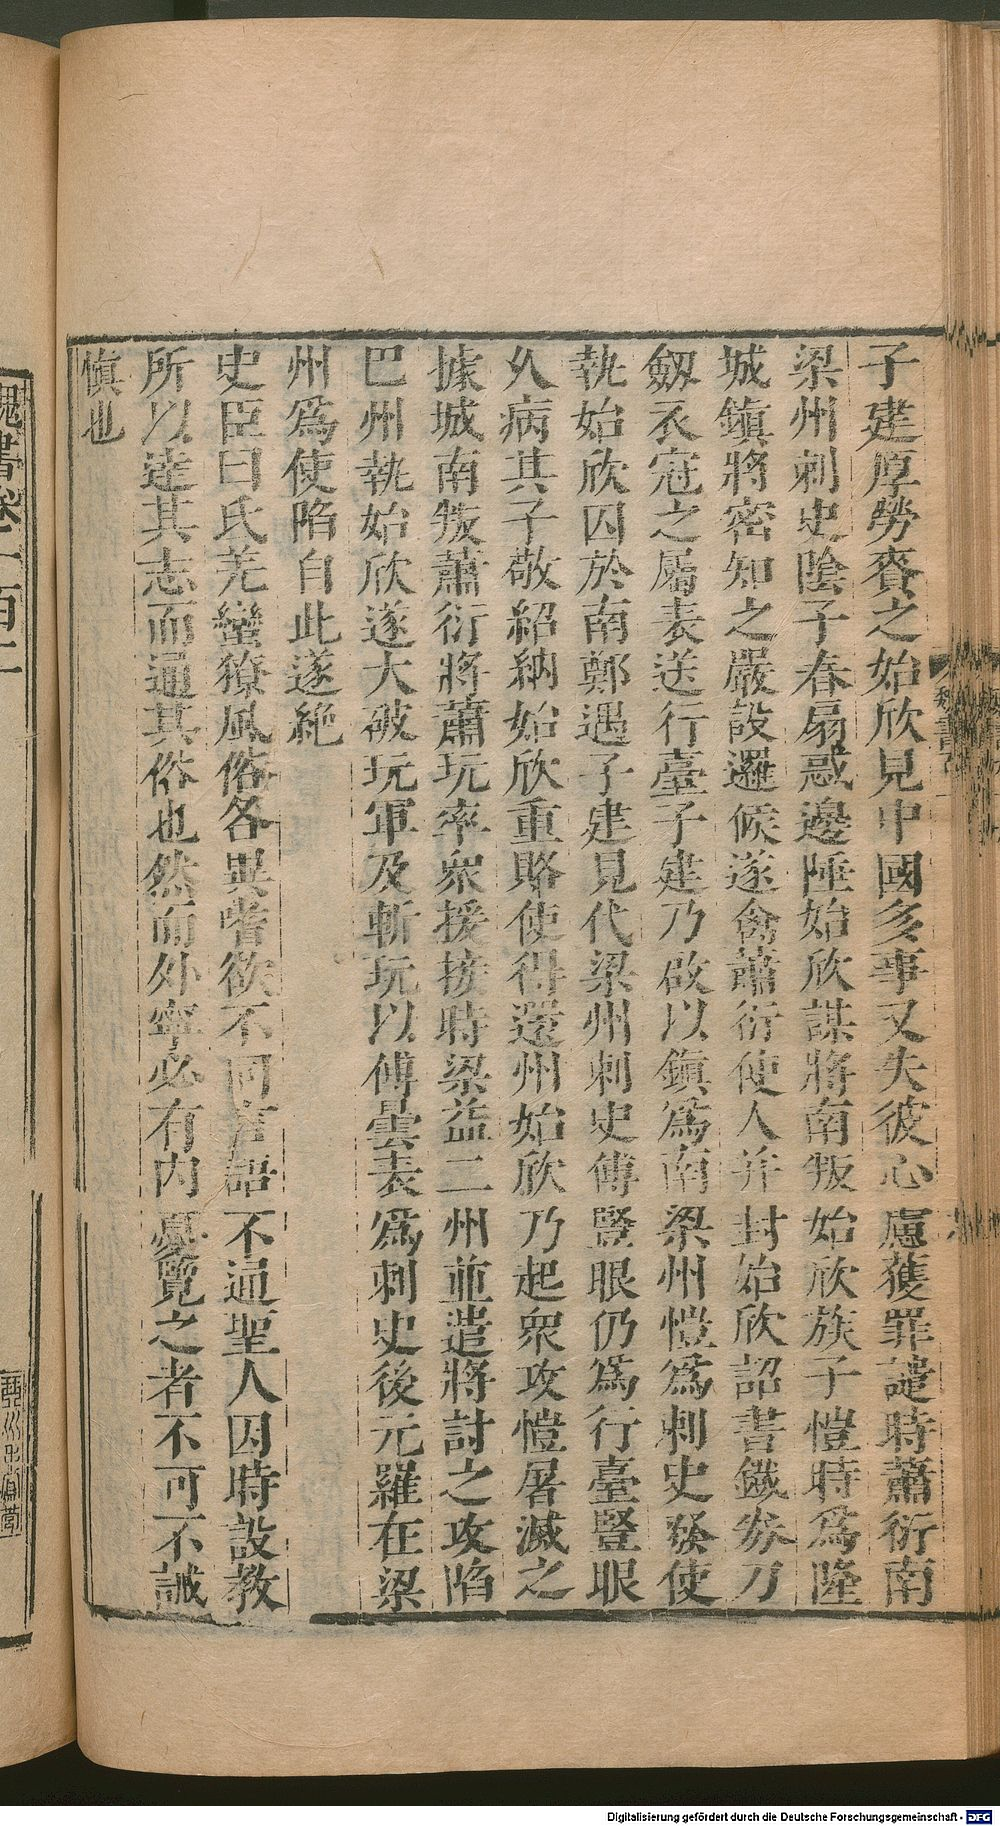 子建厚勞賚之始欣見中國多事又失彼心慮獲罪譴時蕭衍南
梁州刺史陰子春扇惑邊陲始欣謀將南叛始欣族子愷時爲隆
城鎭將密知之嚴設邏候遂禽蕭衍使人并封始欣詔書鐵券刀
劔衣冠之屬表送行臺子建乃啟以鎭爲南梁州愷爲刺史發使
執始欣囚於南鄭遇子建見代梁州刺史傅豎眼仍爲行臺豎眼
久病其子敬紹納始欣重賂使得還州始欣乃起衆攻愷屠滅之
據城南叛蕭衍將蕭玩率衆援接時梁益二州並遣將討之攻陷
巴州執始欣遂大破玩軍及斬玩以傅曇表爲刺史後元羅在梁
州爲使陷自此遂絶
史臣曰氐羌蠻獠風俗各異嗜欲不同言語不通聖人因時設教
所以達其志而通其俗也然而外寧必有内憂覽之者不可不誡
愼也
魏書卷一百一
Digitalisierung gefördert durch die Deutsche Forschungsgemeinschaft - DFG